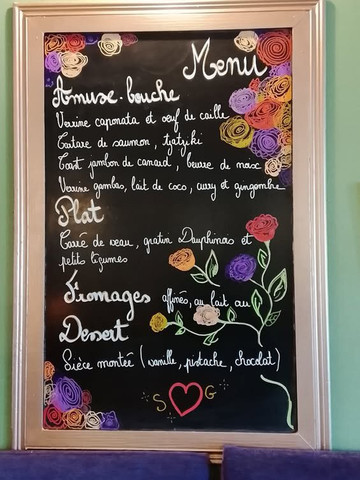 Menu
Amuse-bouche
Verrine caponata et oeuf de caille
Tartare de saumon, tzatziki
Toast jambon de canard, beurre de noix
Verrine gambas, lait de coco, curry et gingembre
Plat
Carré de veau, gratin Dauphinois et
petits légumes
Fromages affinés, au lait cru
Dessert
Pièce montée (vanille, pistache, chocolat)
S G